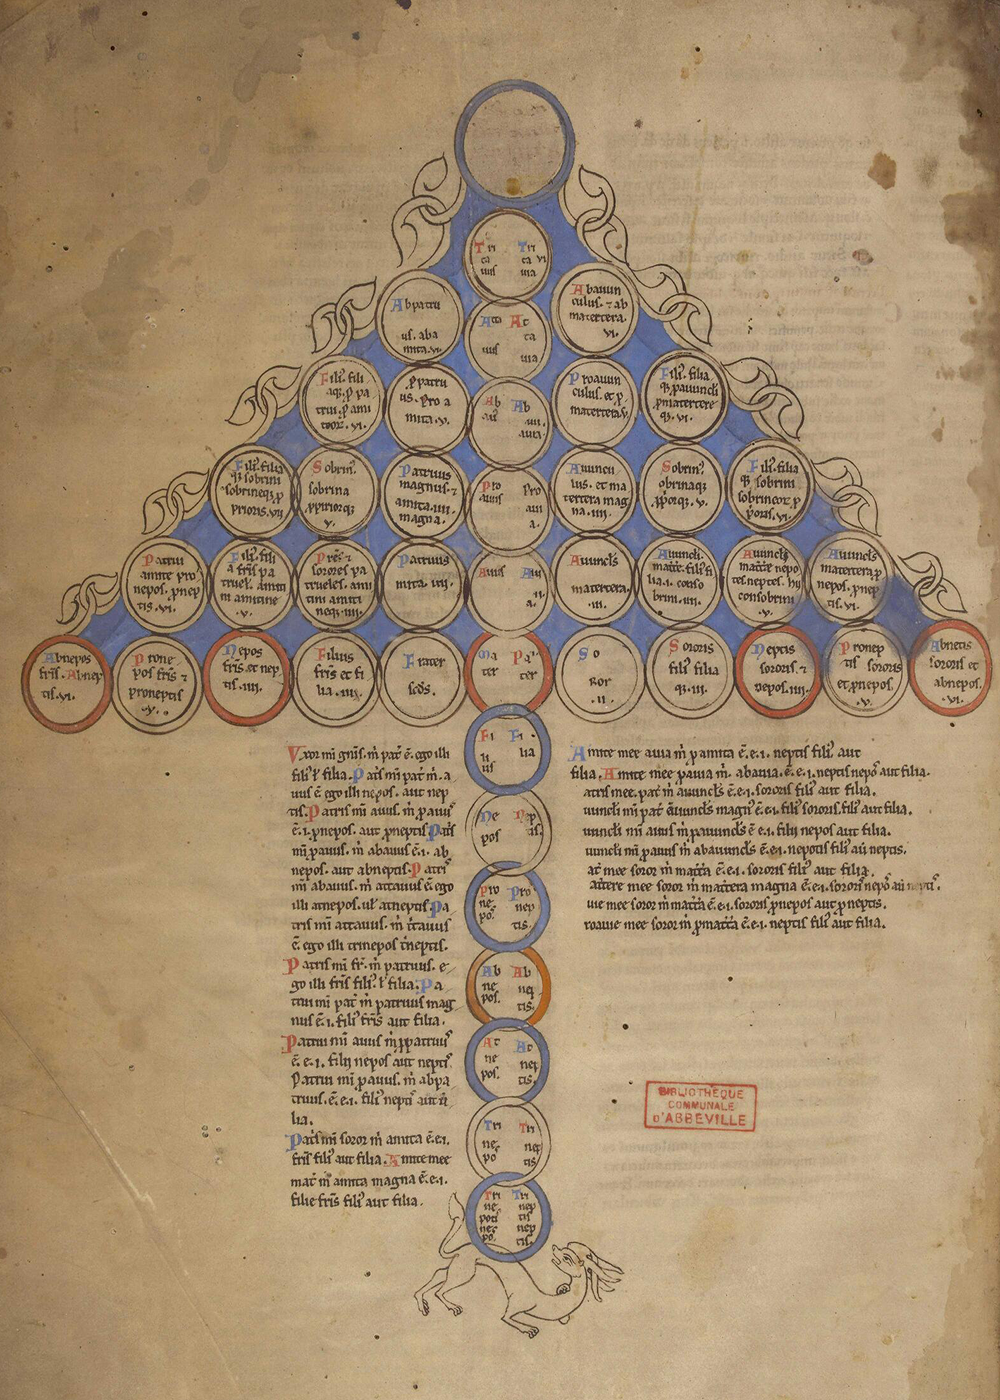 Tri Tri
ca ca vi
uus uia
Abpatru
us. aba
mita. vi.
Abauun
culus. ⁊ ab
matertera.
vi.
Ata At
ta
uus uia
Fili. fili
aq. p pa
trui. p ami
. vi.
ppatru
us. pro a
mita. v.
Ab Ab
au
auia
Proauun
culus. et p
matertera v.
Fili. filia
q pauuncli
pmatertere
q. vi.
Fili. filia
q sobrini
sobrineq p
prioris. vii
Sobrin
sobrina
ppriorq
v.
Patruus
magnus. ⁊
amita. iiii.
magna.
Pro Pro
auus aui
a.
Auuncu
lus. et ma
tertera mag
na. iiii.
Sobrin
obrinaq
pporq. v.
Fili. filia
q sobrini
sobrineor p
poris. vi.
Patrui
amite pro
nepos. pnep
tis. vi.
Fili. fili
a fris pa
truel. amiti
ni amitine
. v.
Pres ⁊
sorores pa
trueles. ami
tini amiti
neq. iiii.
Patruus
mita. iii.
Auus Au
ii
a.
Auuncls
matertera.
. iii.
Auuncli.
matte. fili fi
lia. i. conso
brini. iiii.
Auuncls
matte nepo
tes neptes. hii
consobrini
. v.
Auuncls
matertera p
nepos. pnep
tis. vi.
Abnepos
fris. Abnep
tis. vi.
Prone
pos fris ⁊
proneptis
. v.
Nepos
fris. et nep
tis. iiii.
Filius
fris et fi
lia. iii.
Frater
scds.
Ma Pa
ter ter
So
ror
. ii.
Sororis
fili filia
q. iii.
Neptis
sororis. ⁊
nepos. iiii.
Pronep
tis sororis
et pnepos.
Abnetis
sororis et
abnepos.
vi.
Fi Fi
li lia
us
Ne Nep
pos tis.
Pro Pro
ne nep
po. tis.
Ab Ab
ne nep
pos. tis.
At At
ne nep
pos. tis.
Tri Tri
ne nep
po tis
Tri Tri
ne nep
poti tis
ne nep
po. tis.
Vxor mi gnis. m pat e. ego illi
fili l filia. Patis mi pat m. a
uus e ego illi nepos. aut nep
tis. Patris mi auus. m pauus
e. i. pnepos. aut pneptis Patis
mi pauus. m abauus e. i. ab
nepos. aut abneptis. Patri
mi abauus. m attauus e ego
illi atnepos. ul atneptis. Pa
tris mi attauus. m ttauus
e. ego illi trinepos tneptis.
Patris mi fr. m patruus. e
go illi fris fili. l filia. Pa
trui mi pat m patruus mag
nus e. i. fili fris aut filia.
Patrui mi auus m ppatruus
e. e. i. filij nepos aut nepti
Patrui mi pauus. m abpa
truus. e. e. i. fili nepti aut fi
lia.
Patis mi soror m amita e. e. i.
fris fili aut filia. Amite mee
mat m amita magna e. e. i.
filie fris fili aut filia.
Amite mee auia m pamita e. e. i. neptis fili aut
filia. Amite mee pauia m. abauia. e. e. i. neptis nepo aut filia.
atris mee. pat m auuncls e. e. i. sororis fili aut filia.
uuncli mi pat auuncls magn e. e. i. fili sororis. fili aut filia.
uuncli mi auus m pauuncls e e. i. filij nepos aut filia.
uuncli mi pauus m abauuncls e. e. i. nepotis fili au neptis.
at mee soror m matta e. e. i. sororis fili aut filia.
attere mee soror m mattera magna e. e. i. sororis nepo au neptis.
uie mee soror m matta e. e. i. sororis pnepos aut pneptis.
roauie mee soror m pmatta e. e. i. neptis fili aut filia.
BIBLIOTHÈQUE
COMMUNALE
D'ABBEVILLE